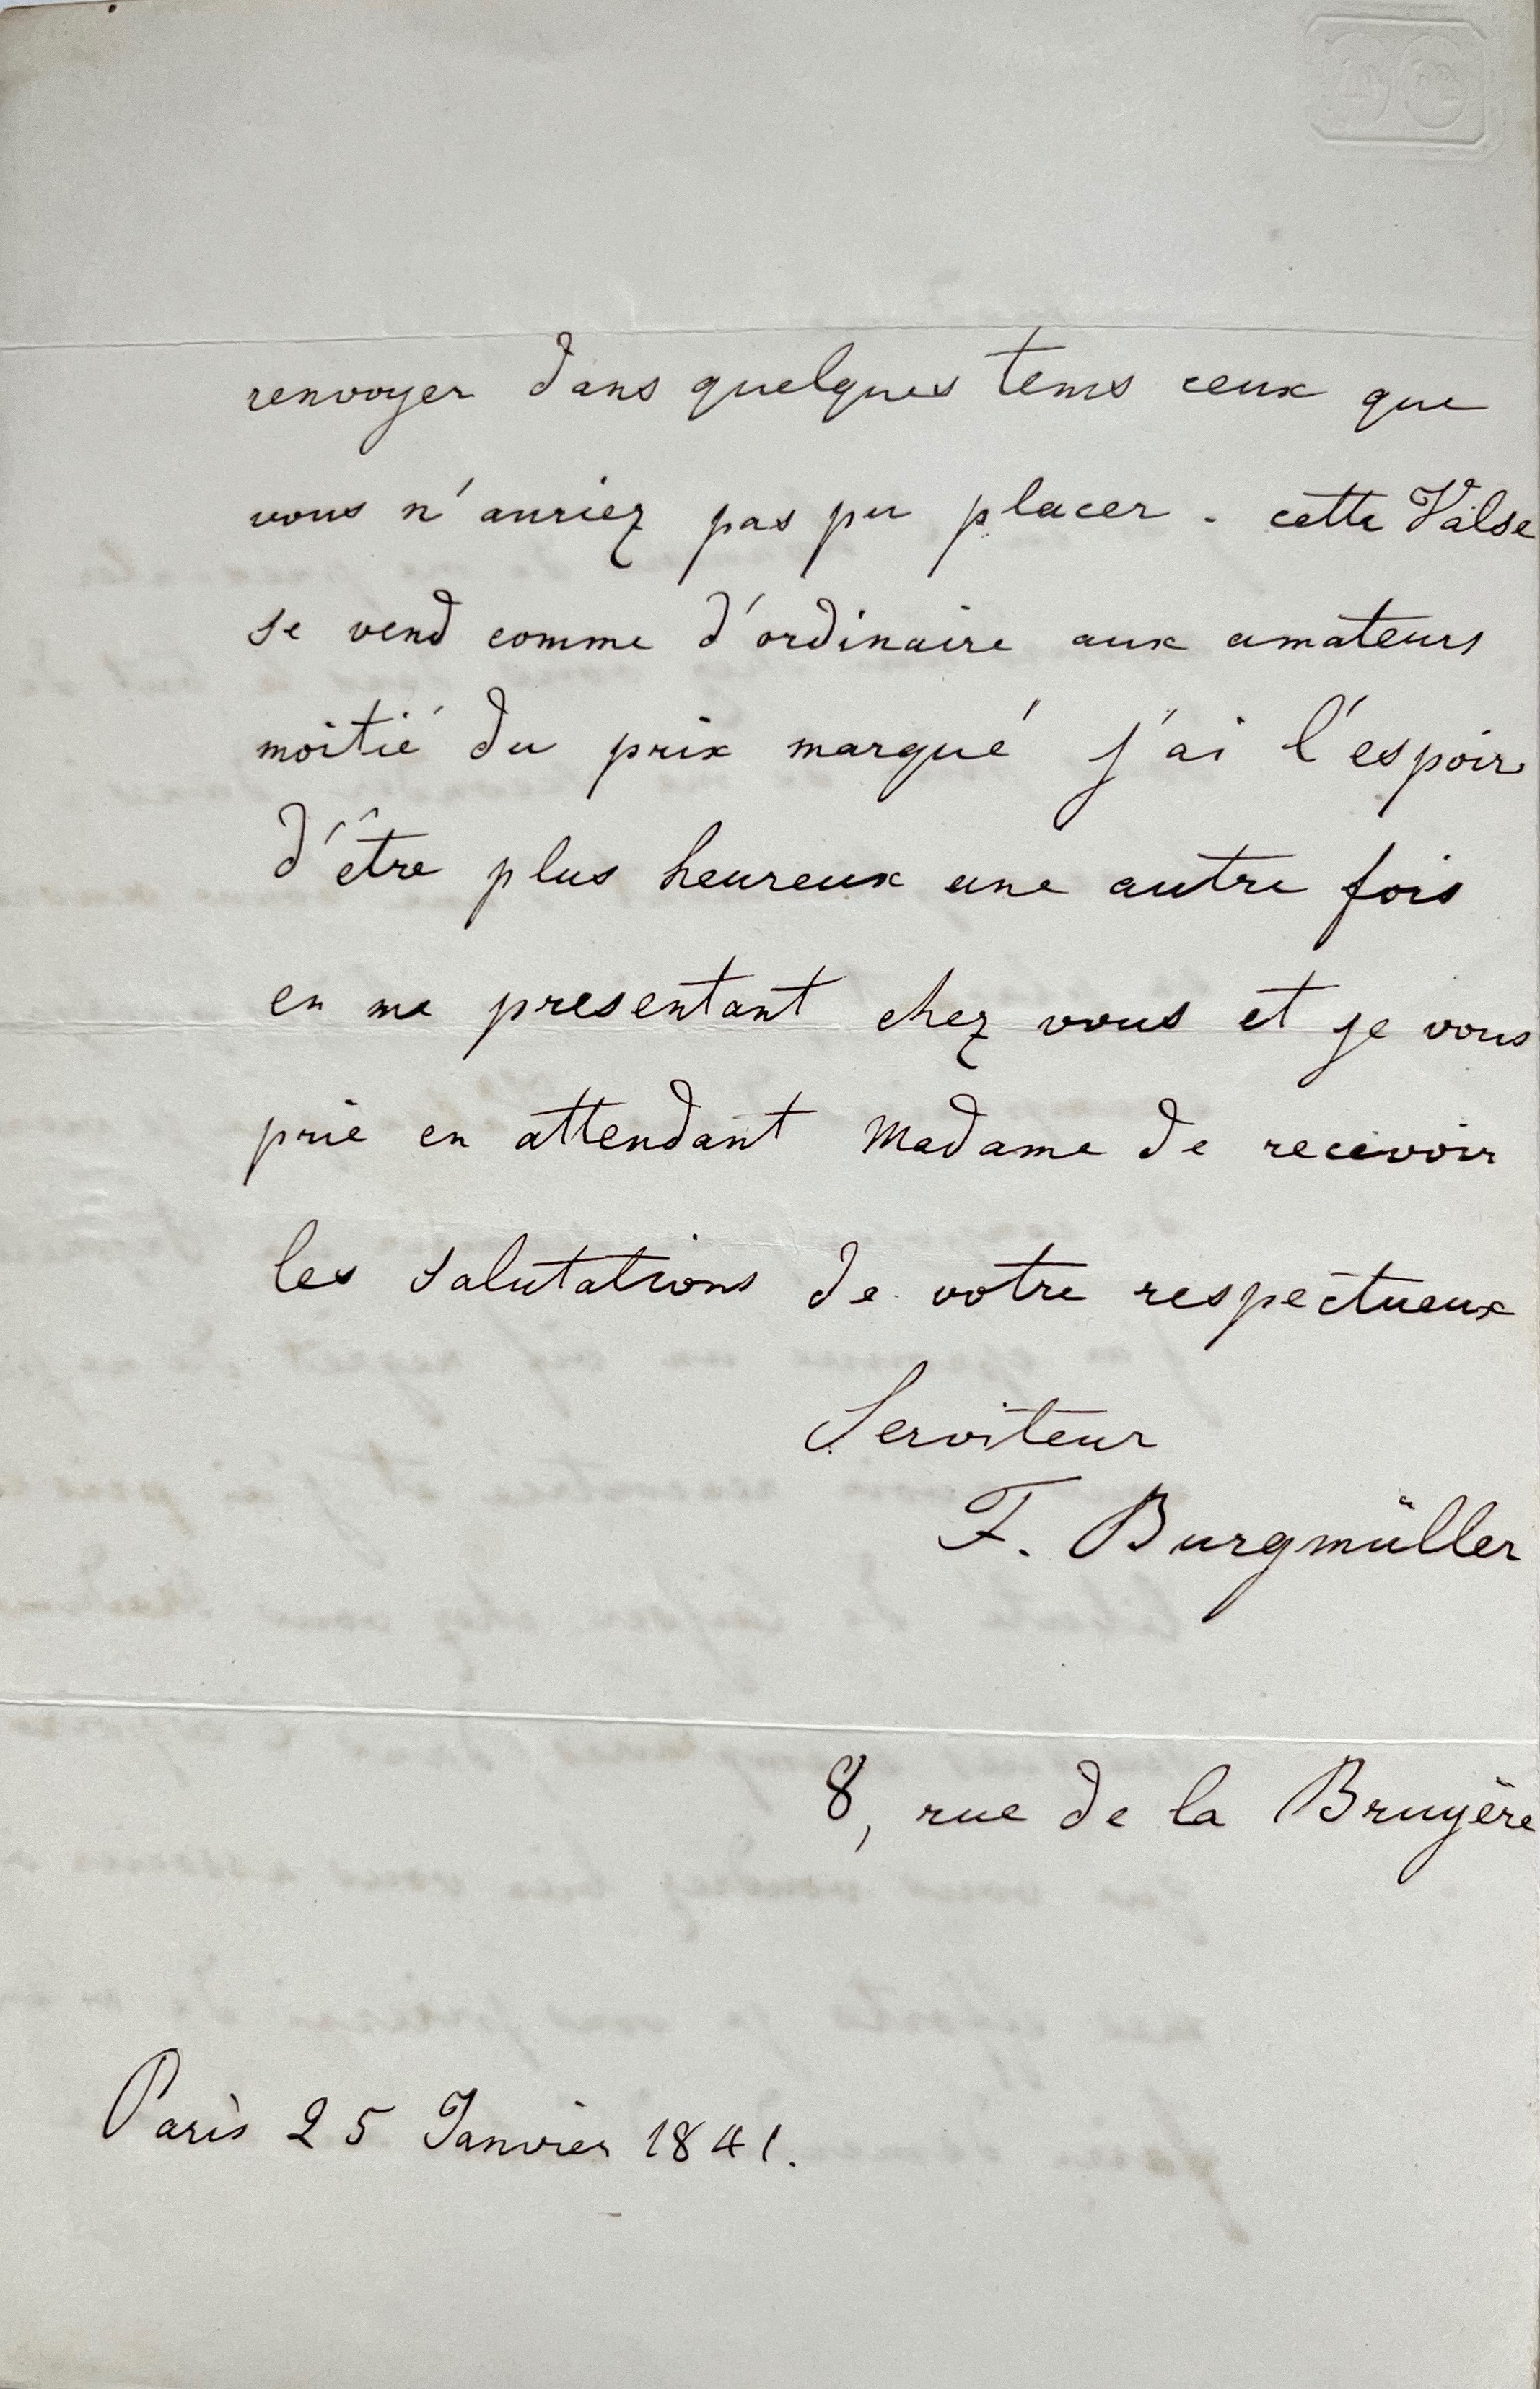 renvoyer dans quelques tems ceux que
vous n'auriez pas pu placer. cette Valse
se vend comme d'ordinaire aux amateurs
moitié du prix marqué j'ai l'espoir
d'être plus heureux une autre fois
en me presentant chez vous et je vous
prie en attendant Madame de recevoir
les salutations de votre respectueux
Serviteur
F. Burgmüller
8, rue de la Bruyère
Paris 25 Janvier 1841.